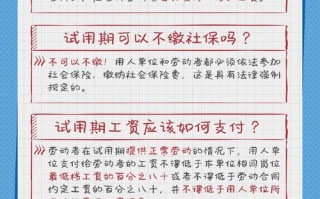 试用期可以不缴社保吗？
不可以不缴！用人单位和劳动者都必须依法参加
社会保险，缴纳社会保险费，这是具有法律强制
规定的。
试用期工资应该如何支付？
劳动者在试用期提供正常劳动的情况下，用人单
位支付给劳动者的工资不得低于本单位相同岗位
最低档工资的百分之八十或者不得低于劳动合同
约定工资的百分之八十，并不得低于用人单位所